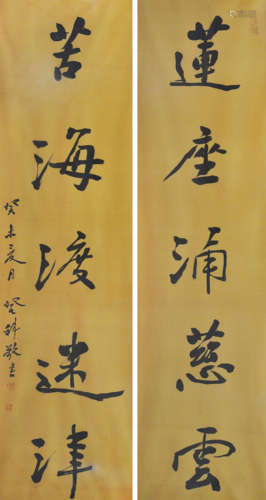 蓮座涌慈雲
苦海渡迷津
癸未夏月